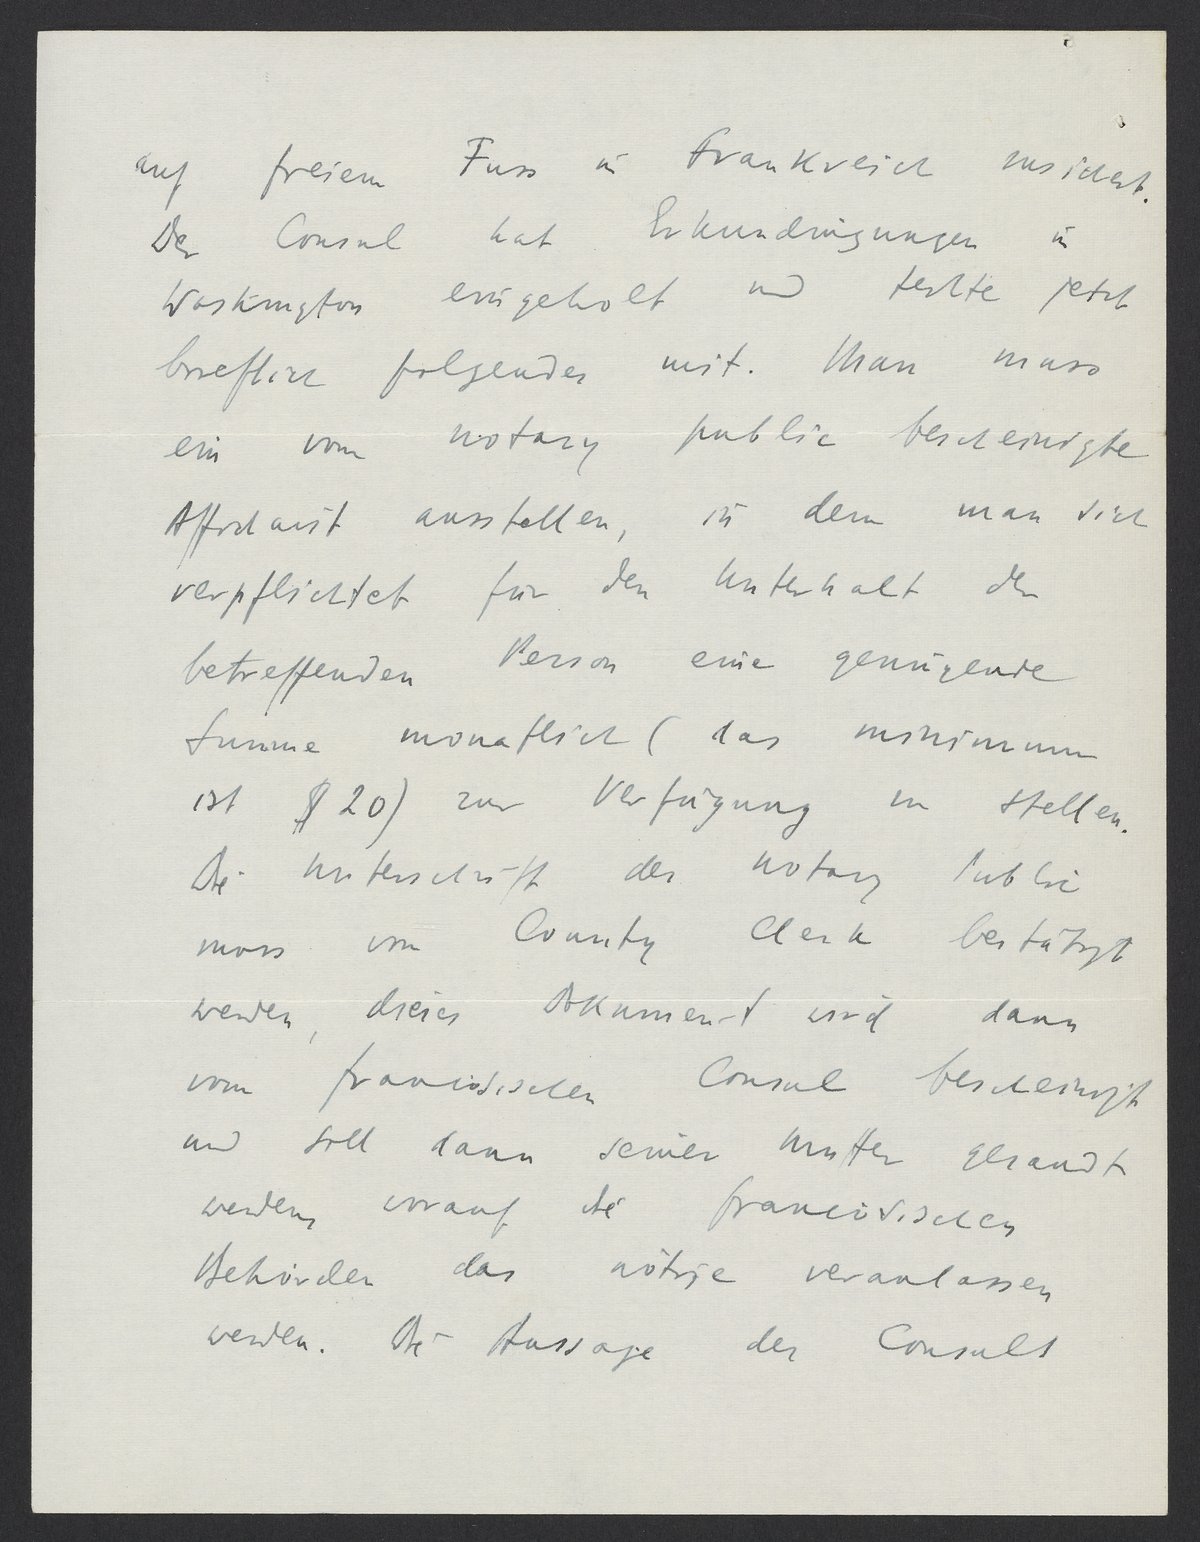 auf freiem Fuss in Frankreich zusichert.
Der Consul hat Erkundigungen in
Washington eingeholt und teilte jetzt
brieflich folgendes mit. Man muss
ein vom notary public bescheinigte
Affidavit ausstellen, in dem man sich
verpflichtet für den Unterhalt der
betreffenden Person eine genügende
Summe monatlich (das minimum
ist $ 20) zur Verfügung zu stellen.
Die Unterschrift des notary Public
muss vom County Clerk bestätigt
werden, dieses Dokument wird dann
vom französischen Consul bescheinigt
und soll dann seiner Mutter gesandt
werden, worauf die französischen
Behörden das nötige veranlassen
werden. Die Aussage des Consuls